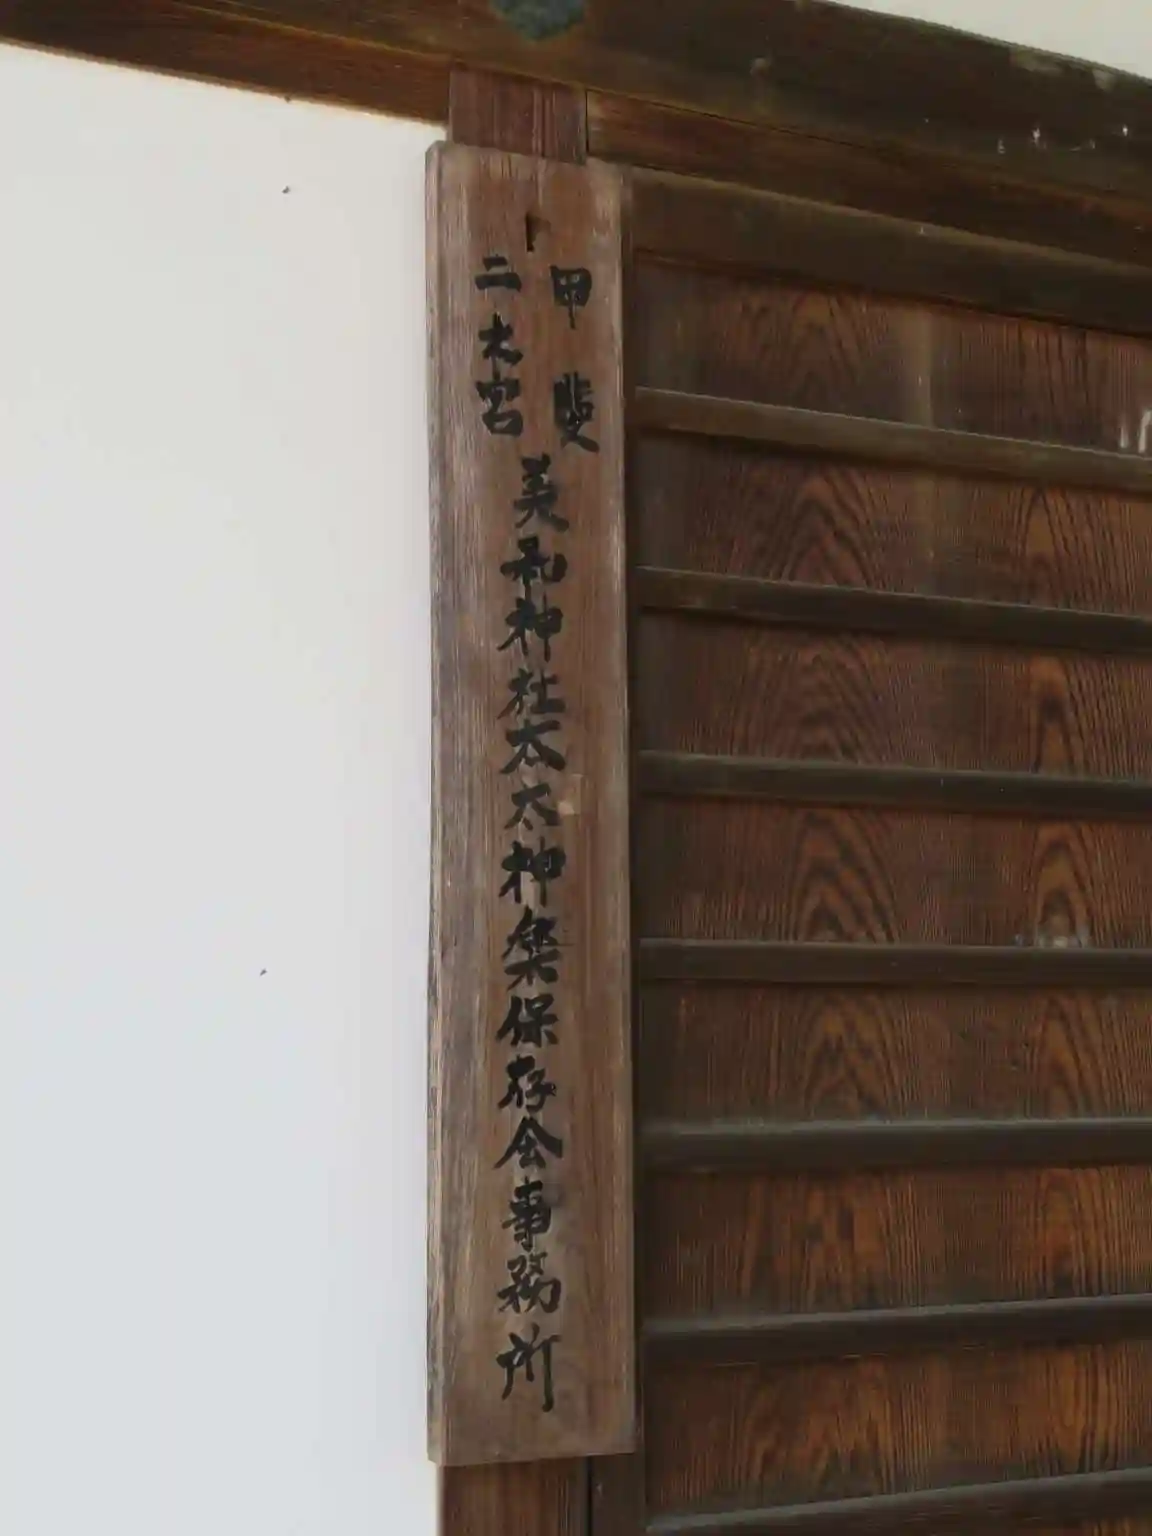 甲斐
二之宮
美和神社太太神樂保存会事務所